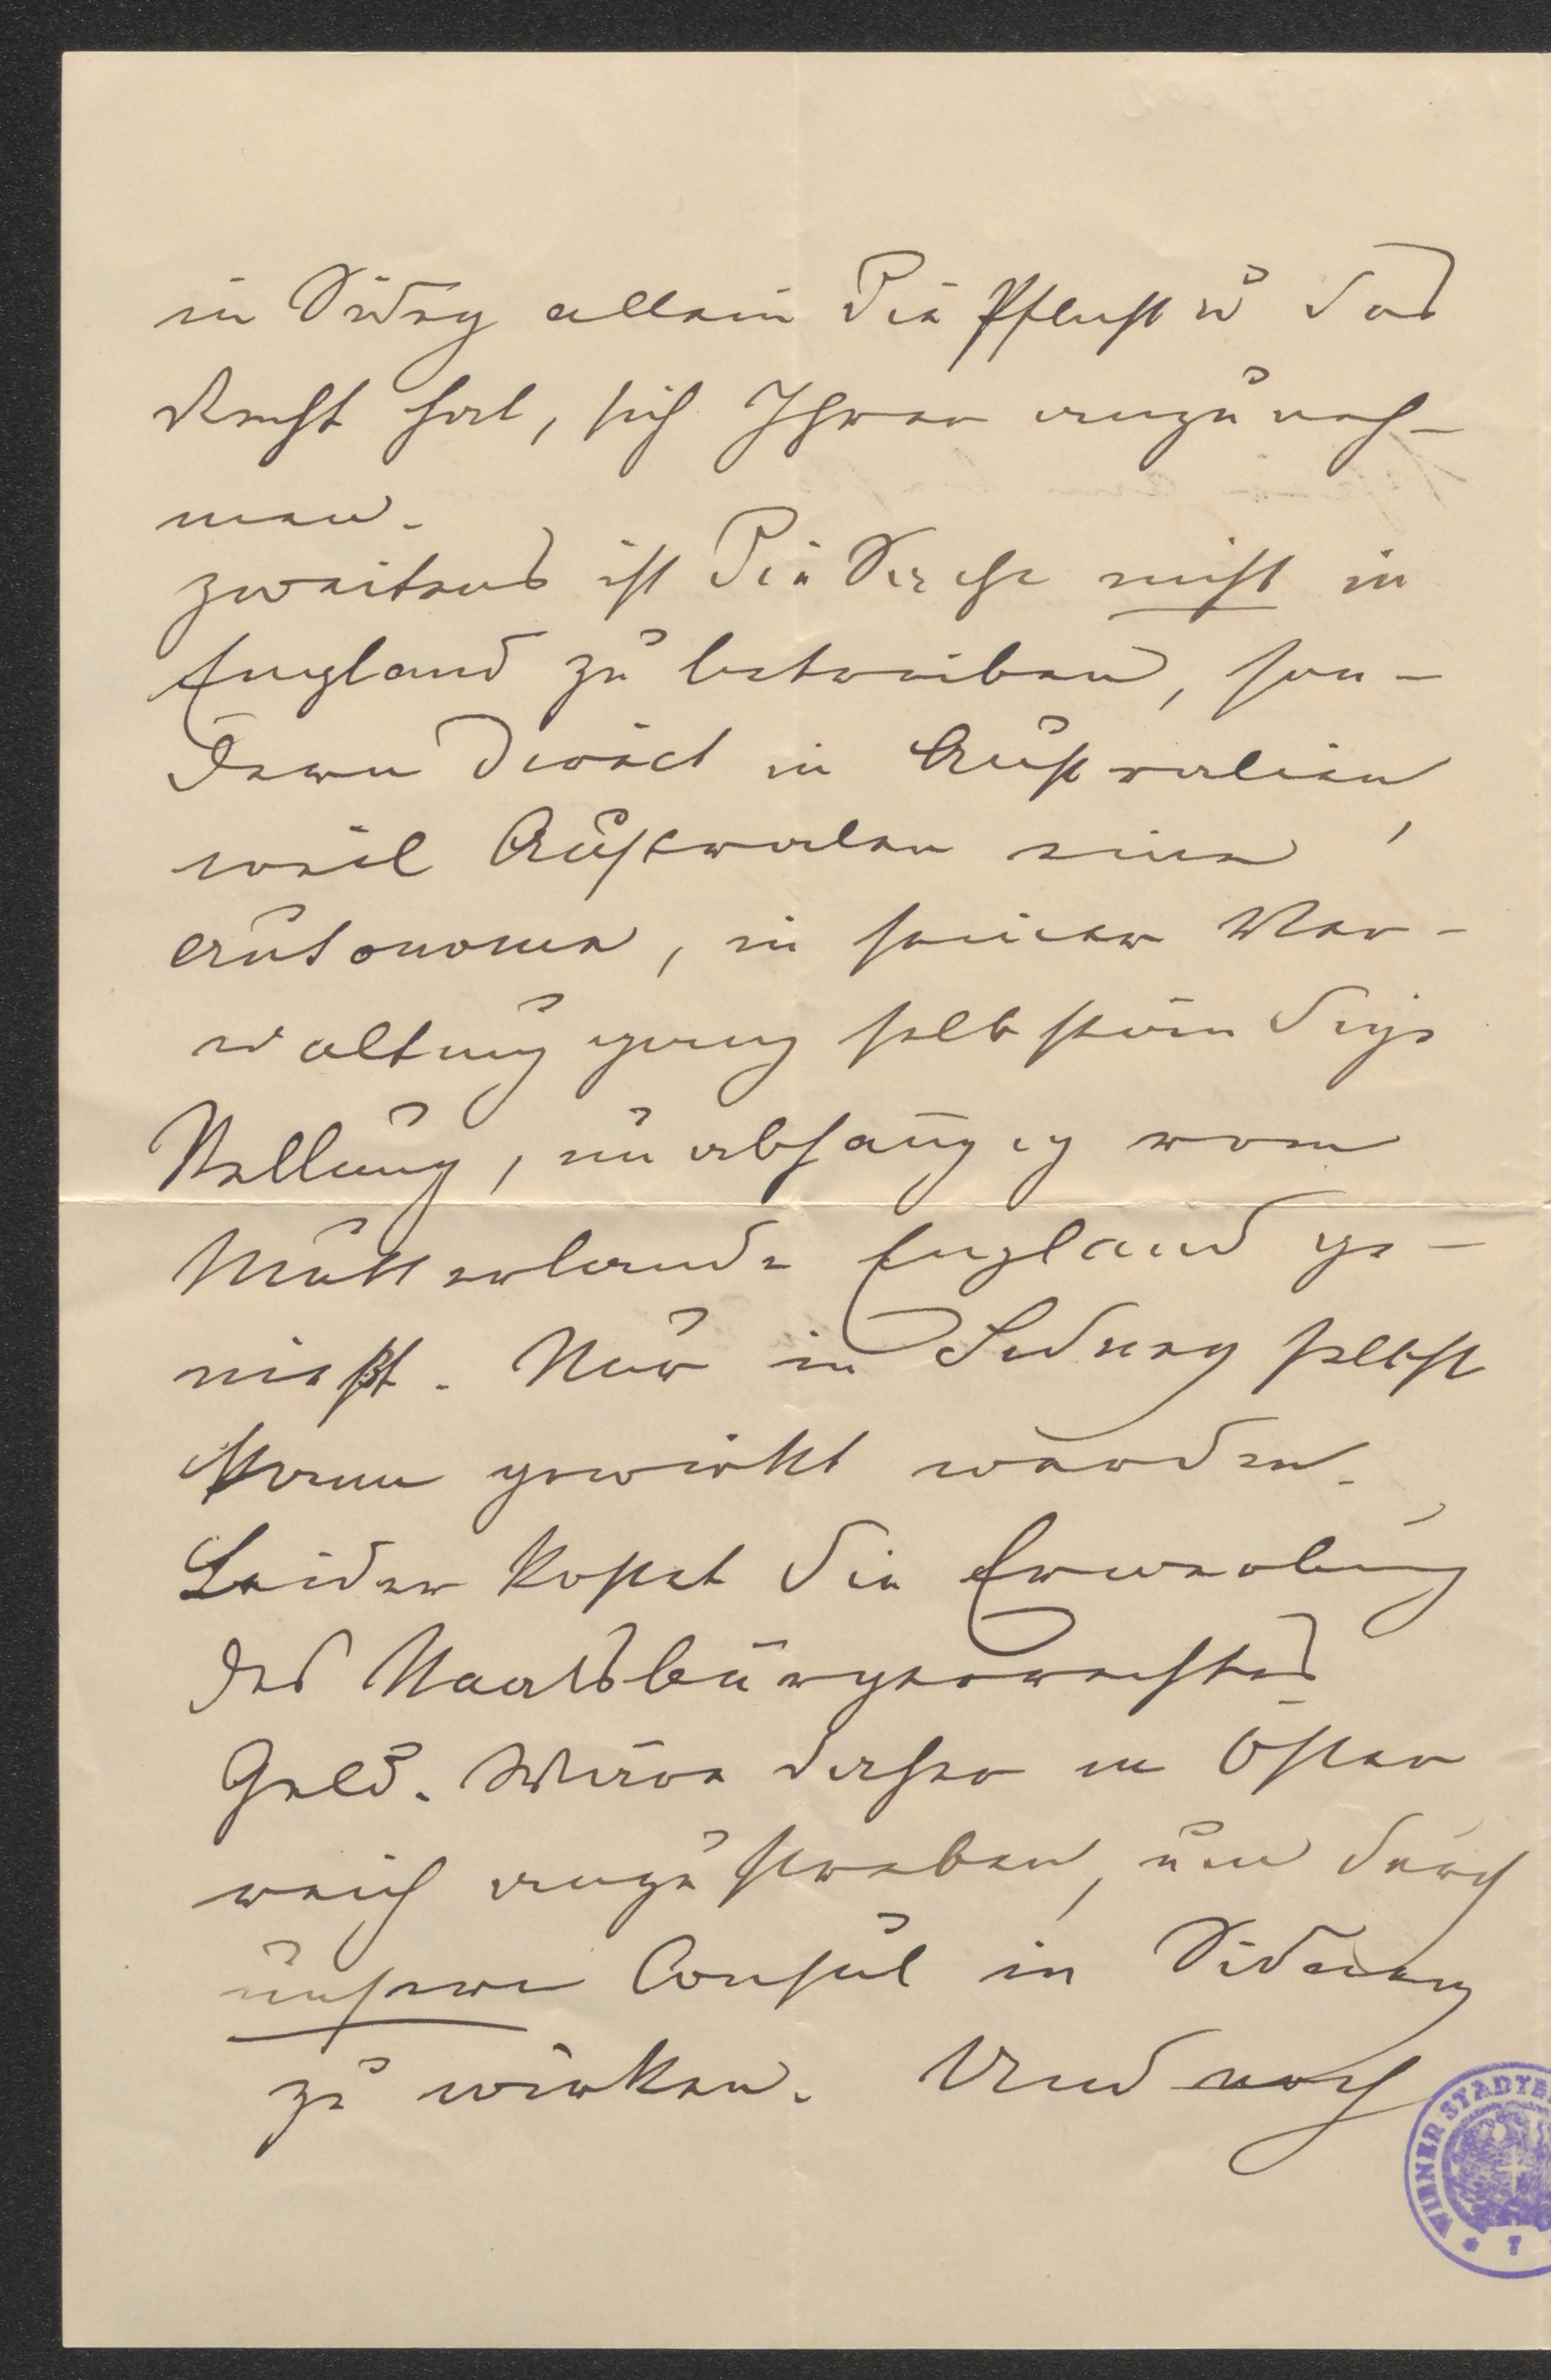 in Sidney allein die Pflicht u das
Recht hat, sich Ihrer anzuneh-
men.
zweitens ist die Sache nicht in
England zu betreiben, son-
dern direct in Australien,
weil Australien eine
autonome, in seiner Ver-
waltung ganz selbständige
Stellung, unabhängig vom
Mutterlande England ge-
nießt. Nur in Sidney selbst
kann gewirkt werden.
Leider kostet die Erwerbung
des Staatsbürgerrechtes
Geld. Wäre daher in Öster
reich anzustreben, um durch
unsern Consul in Sidney
zu wirken. Und noch
WIENER STADTB
* 7